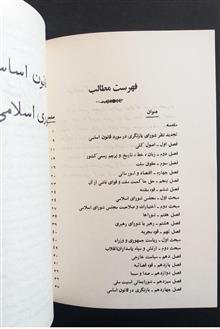 قانون اساسی
جمهوری اسلامی
فهرست مطالب
عنوان
مقدمه
تجدید نظر شورای بازنگری در مورد قانون اساسی
فصل اول - اصول کلی
فصل دوم - زبان، خط، تاریخ و پرچم رسمی کشور
فصل سوم - حقوق ملت
فصل چهارم - اقتصاد و امور مالی
فصل پنجم - حق حاکمیت ملت و قوای ناشی از آن
فصل ششم - قوه مقننه
مبحث اول - مجلس شورای اسلامی
مبحث دوم - اختیارات و صلاحیت مجلس شورای اسلامی
فصل هفتم - شوراها
فصل هشتم - رهبر یا شورای رهبری
فصل نهم - قوه مجریه
مبحث اول - ریاست جمهوری و وزراء
مبحث دوم - ارتش و سپاه پاسداران انقلاب
فصل دهم - سیاست خارجی
فصل یازدهم - قوه قضائیه
فصل دوازدهم - صدا و سیما
فصل سیزدهم - شورایعالی امنیت ملی
فصل چهاردهم - بازنگری در قانون اساسی